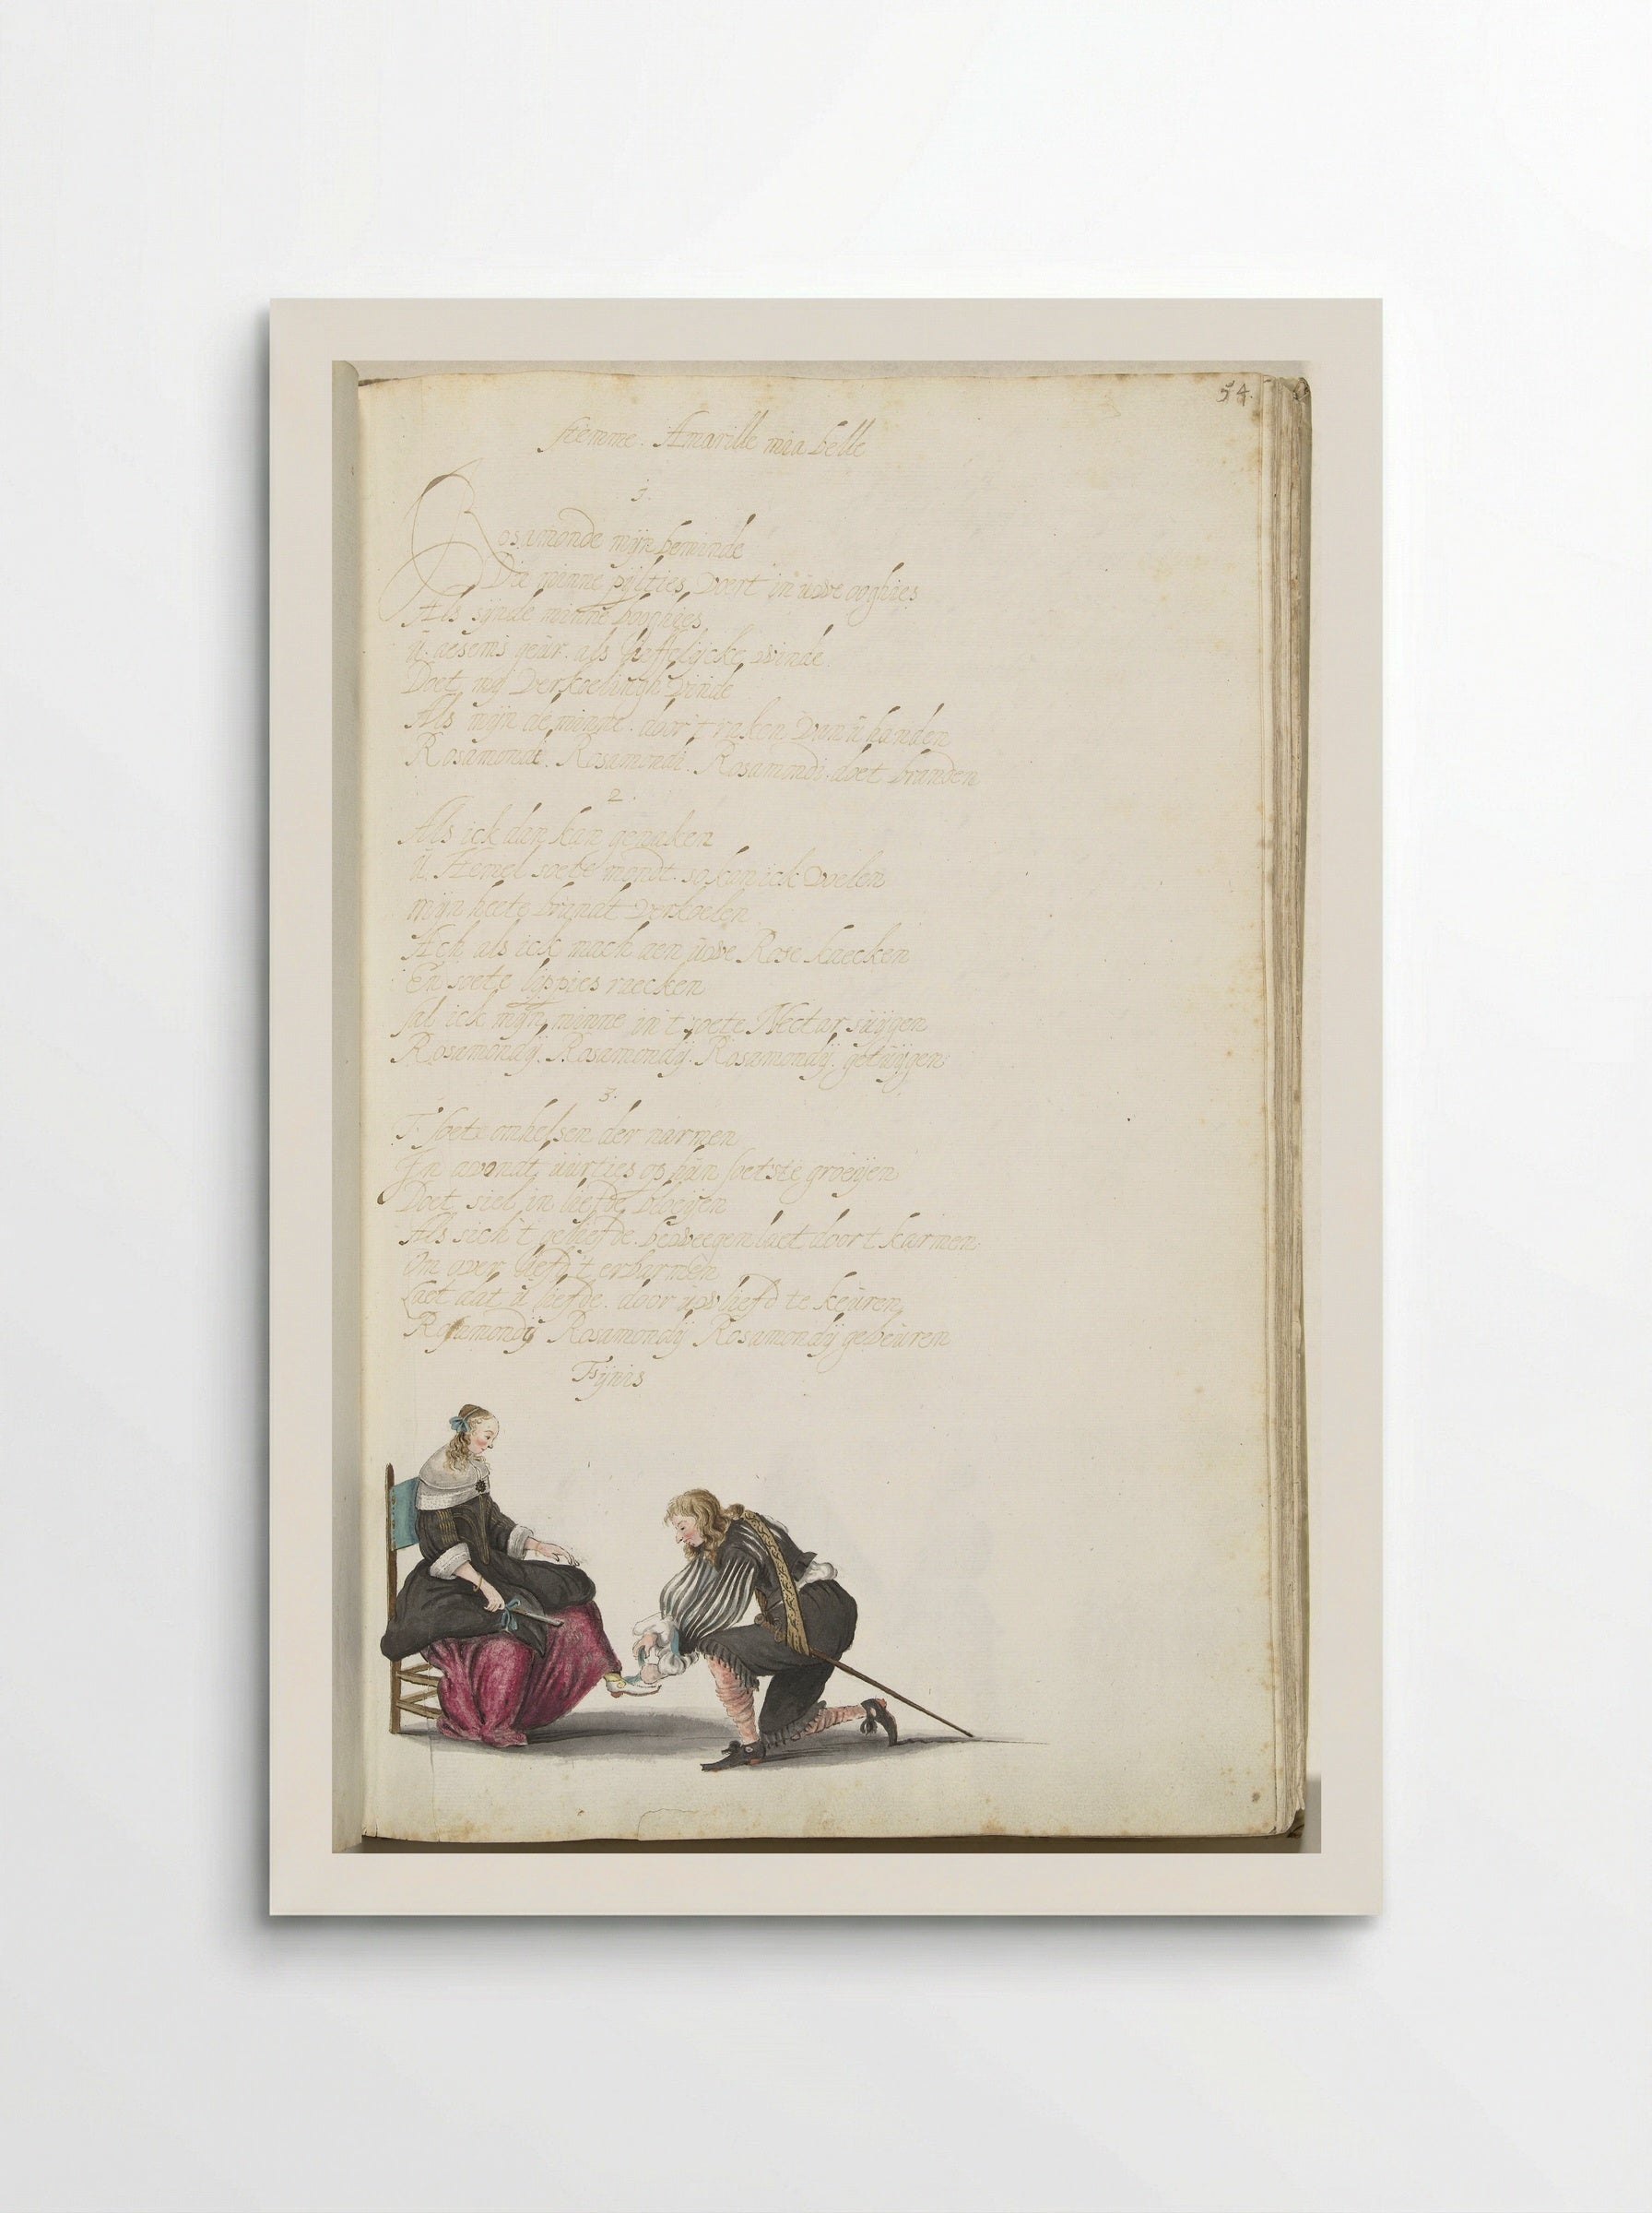 54.
stemme. Amarille mia belle
1.
Rosamonde mijn beminde
Die minne pijlties voert in uwe ooghies
Als sijnde minne booghies
ú aesems geur. als lieffelijcke winde
Doet mij verkoelingh vinde
Als mijn de minne. door't raken van ú handen
Rosamondi. Rosamondi. Rosamondi. doet branden
2.
Als ick dan kan genaken
ú Hemel soete mondt. so kan ick voelen
mijn heete brandt verkoelen
Ach als ick mach aen uwe Rose kaecken
En soete lippies raecken
sal ick mijn minne in't zoete Nectar súijgen
Rosamondij. Rosamondij. Rosamondij. getúijgen
3.
T soete omhelsen der narmen
In avondt úúrties op hún soetste groeijen
Doet siel in liefde bloeijen
Als sich't geliefde. beweegen laet door t karmen
Om over liefd't erbarmen
Laet dat ú liefde. door uw liefd te keúren
Rosamondij Rosamondij Rosamondij gebeúren
Fijnis